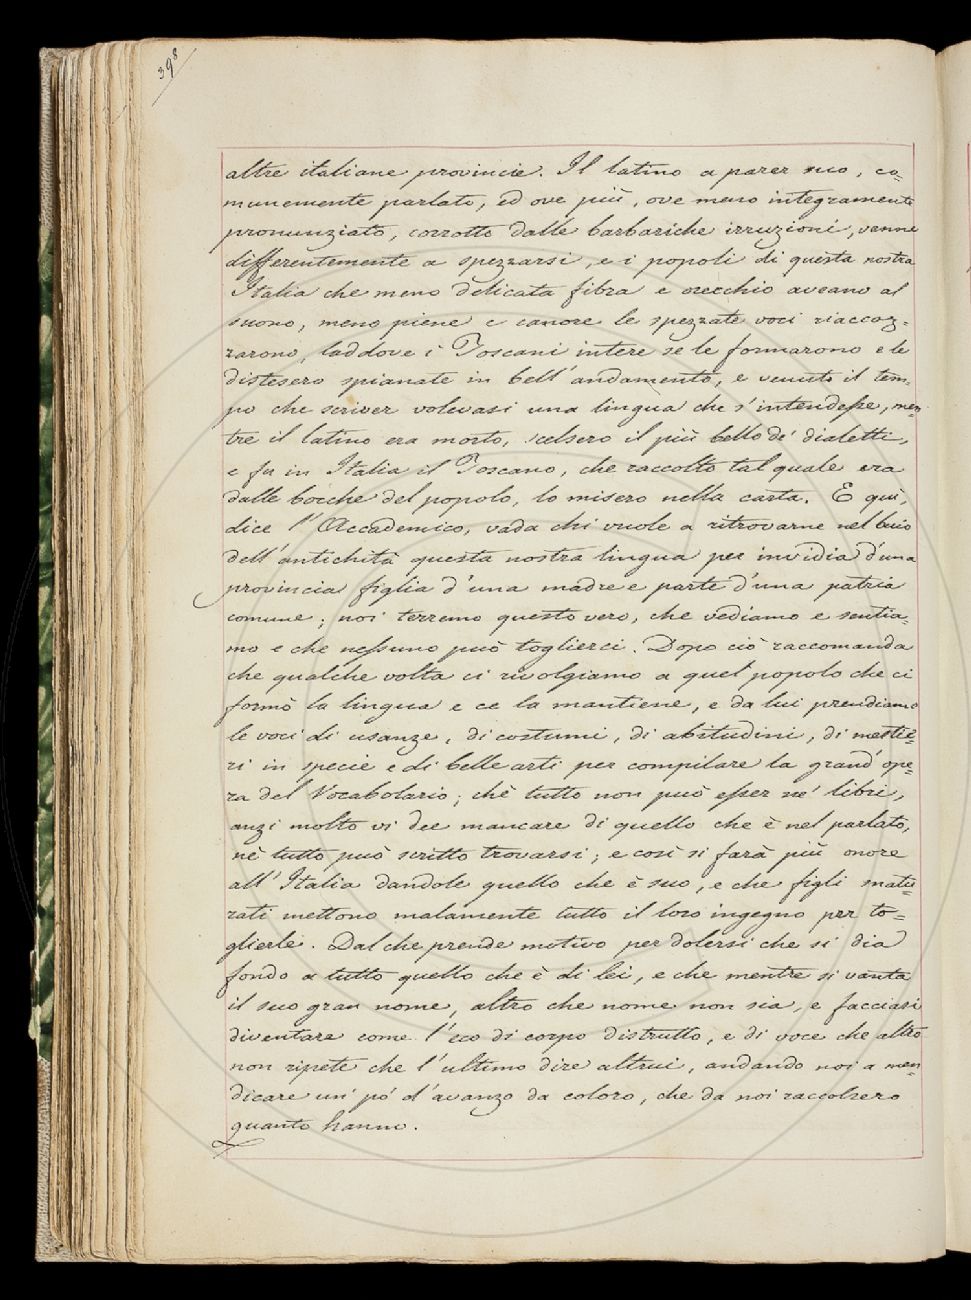 398
altre italiane provincie. Il latino a parer suo, co=
munemente parlato, ed ove più, ove meno integramente
pronunziato, corrotto dalle barbariche irruzioni, venne
differentemente a spezzarsi, e i popoli di questa nostra
Italia che meno delicata fibra e orecchio aveano al
suono, meno piene e canore le spezzate voci riaccoz=
zarono, laddove i Toscani intere se le formarono e le
distesero spianate in bell'andamento, e venuto il tem=
po che scriver volevasi una lingua che s'intendesse, men=
tre il latino era morto, scelsero il più bello de' dialetti,
e fu in Italia il Toscano, che raccolto tal quale era
dalle bocche del popolo, lo misero nella carta. E quì,
dice l'Accademico, vada chi vuole a ritrovarne nel buio
dell'antichità questa nostra lingua per invidia d'una
provincia figlia d'una madre e parte d'una patria
comune; noi terremo questo vero, che vediamo e sentia=
mo e che nessuno può toglierci. Dopo ciò raccomanda
che qualche volta ci rivolgiamo a quel popolo che ci
formò la lingua e ce la mantiene, e da lui prendiamo
le voci di usanze, di costumi, di abitudini, di mestie=
ri in specie e di belle arti per compilare la grand'ope=
ra del Vocabolario; chè tutto non può esser ne' libri,
anzi molto vi dee mancare di quello che è nel parlato,
nè tutto può scritto trovarsi; e così si farà più onore
all'Italia dandole quello che è suo, e che figli snatu=
rati mettono malamente tutto il loro ingegno per to=
glierle. Dal che prende motivo per dolersi che si dia
fondo a tutto quello che è di lei, e che mentre si vanta
il suo gran nome, altro che nome non sia, e facciasi
diventare come l'eco di corpo distrutto, e di voce che altro
non ripete che l'ultimo dire altrui, andando noi a men=
dicare un pò d'avanzo da coloro, che da noi raccolsero
quanto hanno.